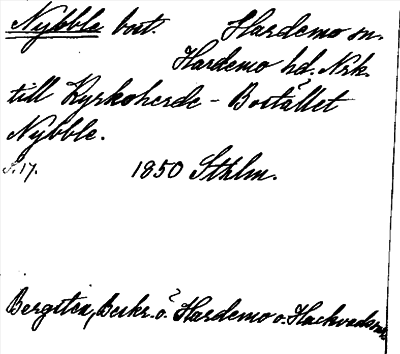 Nybble bost. Hardemo sn.
Hardemo hd. Nrk.
till Kyrkoherde-Bostället
Nybble.
S. 17. 1850 Sthlm.
Bergsten, Beskr. ö. Hardemo o. Hackvads